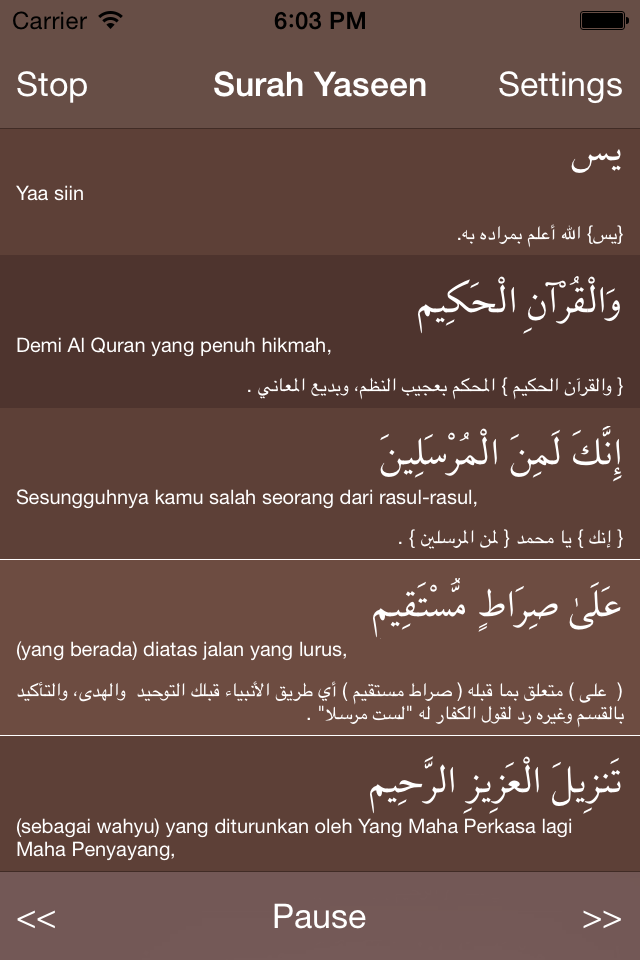 Carrier 6:03 PM
Stop Surah Yaseen Settings
يس
Yaa siin
{يس} الله أعلم بمراده به.
وَالْقُرْآنِ الْحَكِيم
Demi Al Quran yang penuh hikmah,
{ والقرآن الحكيم } المحكم بعجيب النظم، وبديع المعاني .
إِنَّكَ لَمِنَ الْمُرْسَلِينَ
Sesungguhnya kamu salah seorang dari rasul-rasul,
{ إنك } يا محمد { لمن المرسلين } .
عَلَىٰ صِرَاطٍ مُّسْتَقِيم
(yang berada) diatas jalan yang lurus,
( على ) متعلق بما قبله ( صراط مستقيم ) أي طريق الأنبياء قبلك التوحيد والهدى، والتأكيد
بالقسم وغيره رد لقول الكفار له "لست مرسلا" .
تَنزِيلَ الْعَزِيزِ الرَّحِيم
(sebagai wahyu) yang diturunkan oleh Yang Maha Perkasa lagi
Maha Penyayang,
<< Pause >>